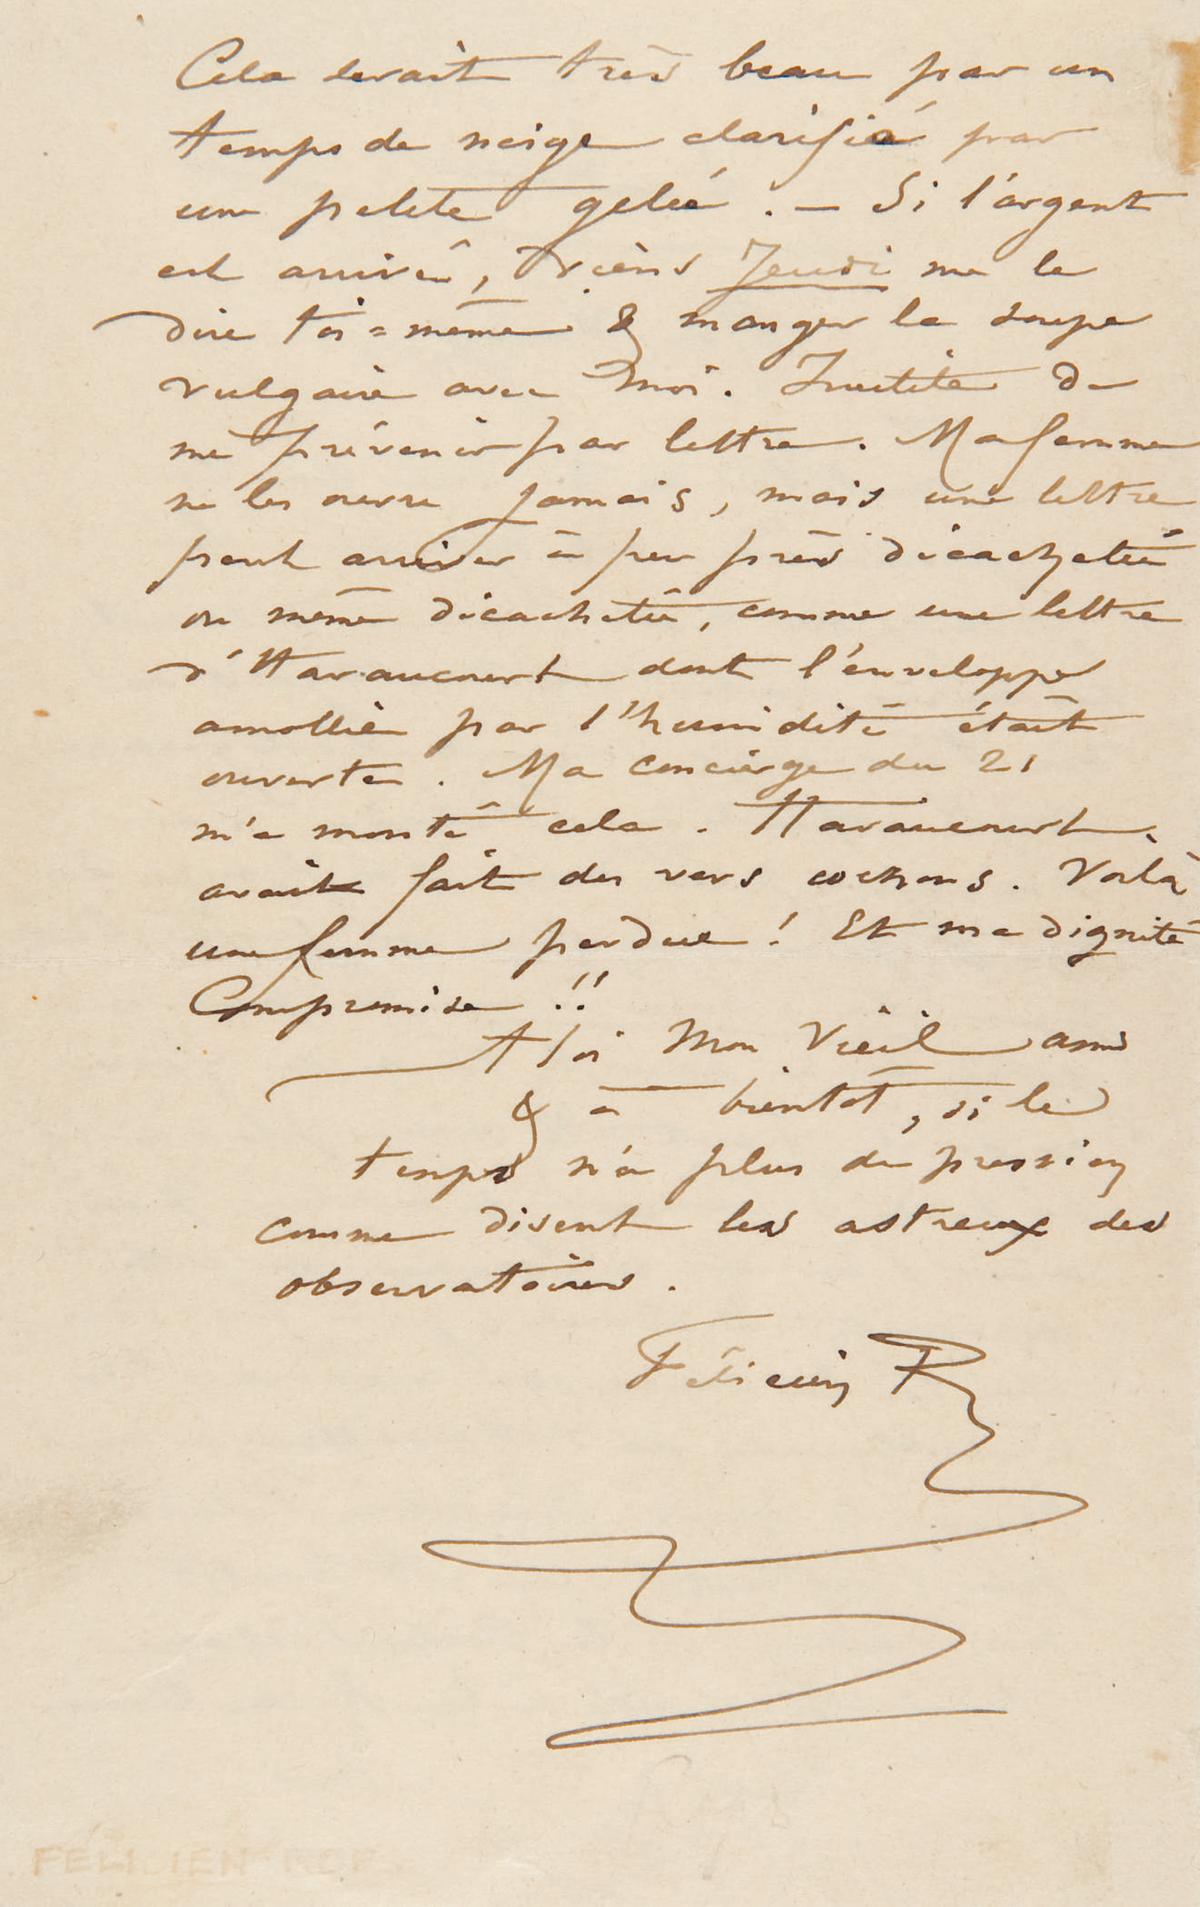 Cela serait très beau par un
temps de neige clarifié par
une petite gelée. — Si l'argent
est arrivé, viens Jeudi me le
dire toi=même & manger la soupe
vulgaire avec moi. Inutile de
me prévenir par lettre. Ma femme
ne les ouvre jamais, mais une lettre
peut arriver à peu près décachetée
ou même décachetée, comme une lettre
d'Haraucourt dont l'enveloppe
amollie par l'humidité était
ouverte. Ma concierge du 21
m'a monté cela. Haraucourt
avait fait des vers cochons. Voilà
une femme perdue! Et ma dignité
Compromise!!
A toi Mon Vieil ami
& à bientôt, si le
temps n'a plus de pression
comme disent les astreux des
observatoires.
Félicien R
Rops
FÉLICIEN ROPS